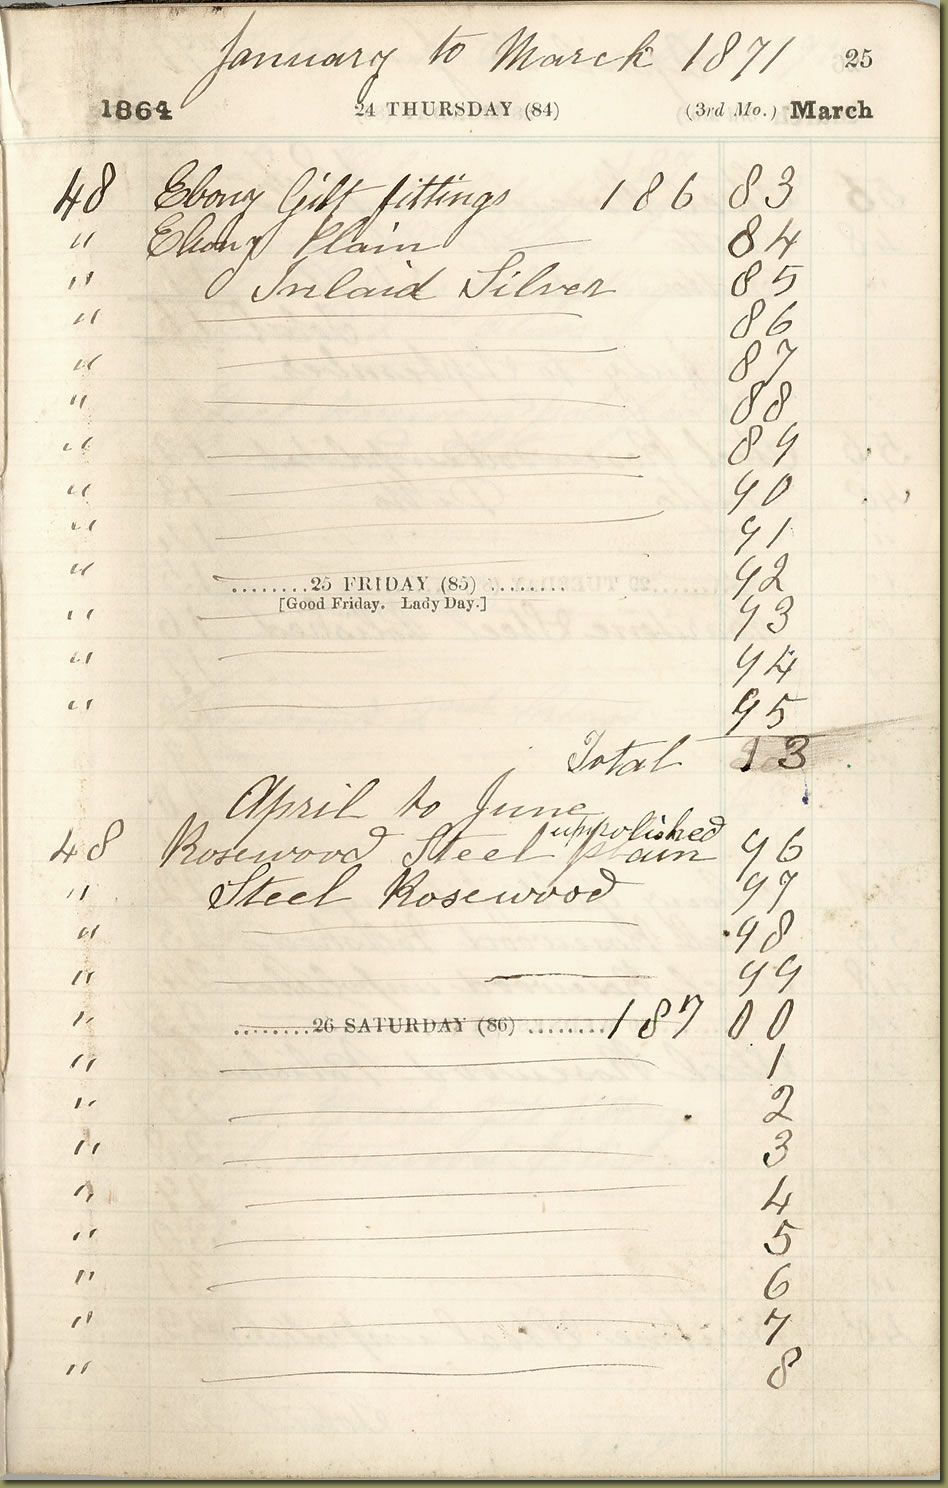 January to March 1871 25
1864 24 THURSDAY (84) (3rd Mo.) March
48 Ebony Gilt fittings 186 83
" Ebony Plain 84
" Inlaid Silver 85
" 86
" 87
" 88
" 89
" 90
" 91
" 92
........25 FRIDAY (85) ........
[Good Friday. Lady Day.]
" 93
" 94
" 95
Total 13
April to June
unpolished
48 Rosewood Steel plain 96
" Steel Rosewood 97
" 98
" 99
" ........26 SATURDAY (86) ........187 00
" 1
" 2
" 3
" 4
" 5
" 6
" 7
" 8